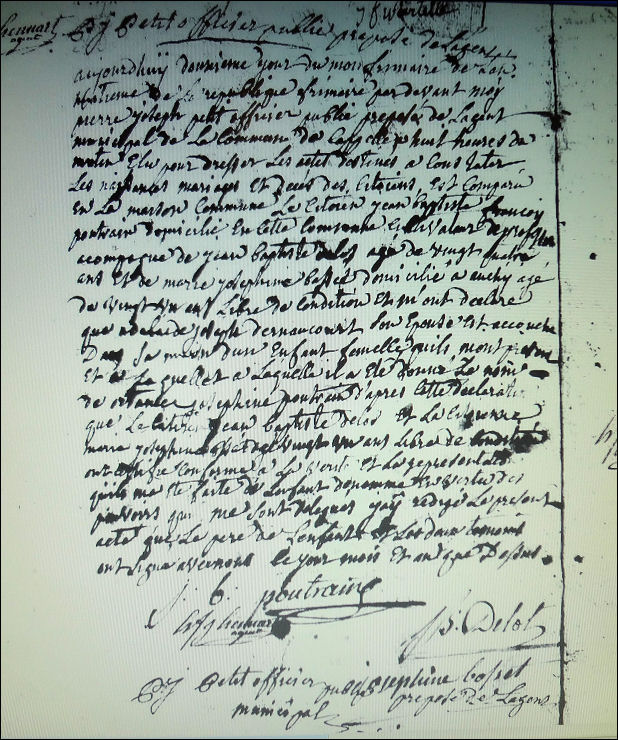 hennart
agent
P J Petit officier public préposé de Lagent
aujourdhuy douxieme jour du mois frimaire de Lan
huitieme de la republique frimaire par devant moy
pierre joseph petit officier public préposé de Lagent
municipal de La Commune de Cappelle a huit heures du
matin Elu pour dresser Les actes destines a Constater
Les naissances mariages Et deces des Citoiens, Est Comparu
En La maison Commune Le Citoien jean baptiste
poutrain domicilié En Cette Commune Cultivateur de profession
accompagne de jean baptiste delos age de vingt quatre
ans Et de marie josephinne domicilié a auchy agé
de vingt un ans Libre de Condition Et m'ont declaré
que adelaide joseph dernaucourt Son Epouse Est accouche
Dans Sa maison dun Enfant femelle quils mont presente
Et a Laquelle il a Ete donné Le nom
de josephine poutrain d'apres Cette declaration
que Le Citoien jean baptiste delos et La Citoienne
marie josephinne de vingt un ans Libre de Condition
ont Certifie Conforme a La verité Et La representation
quils ma Ete faite de Lenfant denommé En vertu des
pouvoirs qui me Sont delegues jay redigé Le present
acte que Le pere de Lenfant et Les deux temoins
ont Signe avec moy le jour mois Et an que Dessus
poutrain
hennart
agent
Delot
josephine
P J Petit officier public préposé de Lagent
municipal